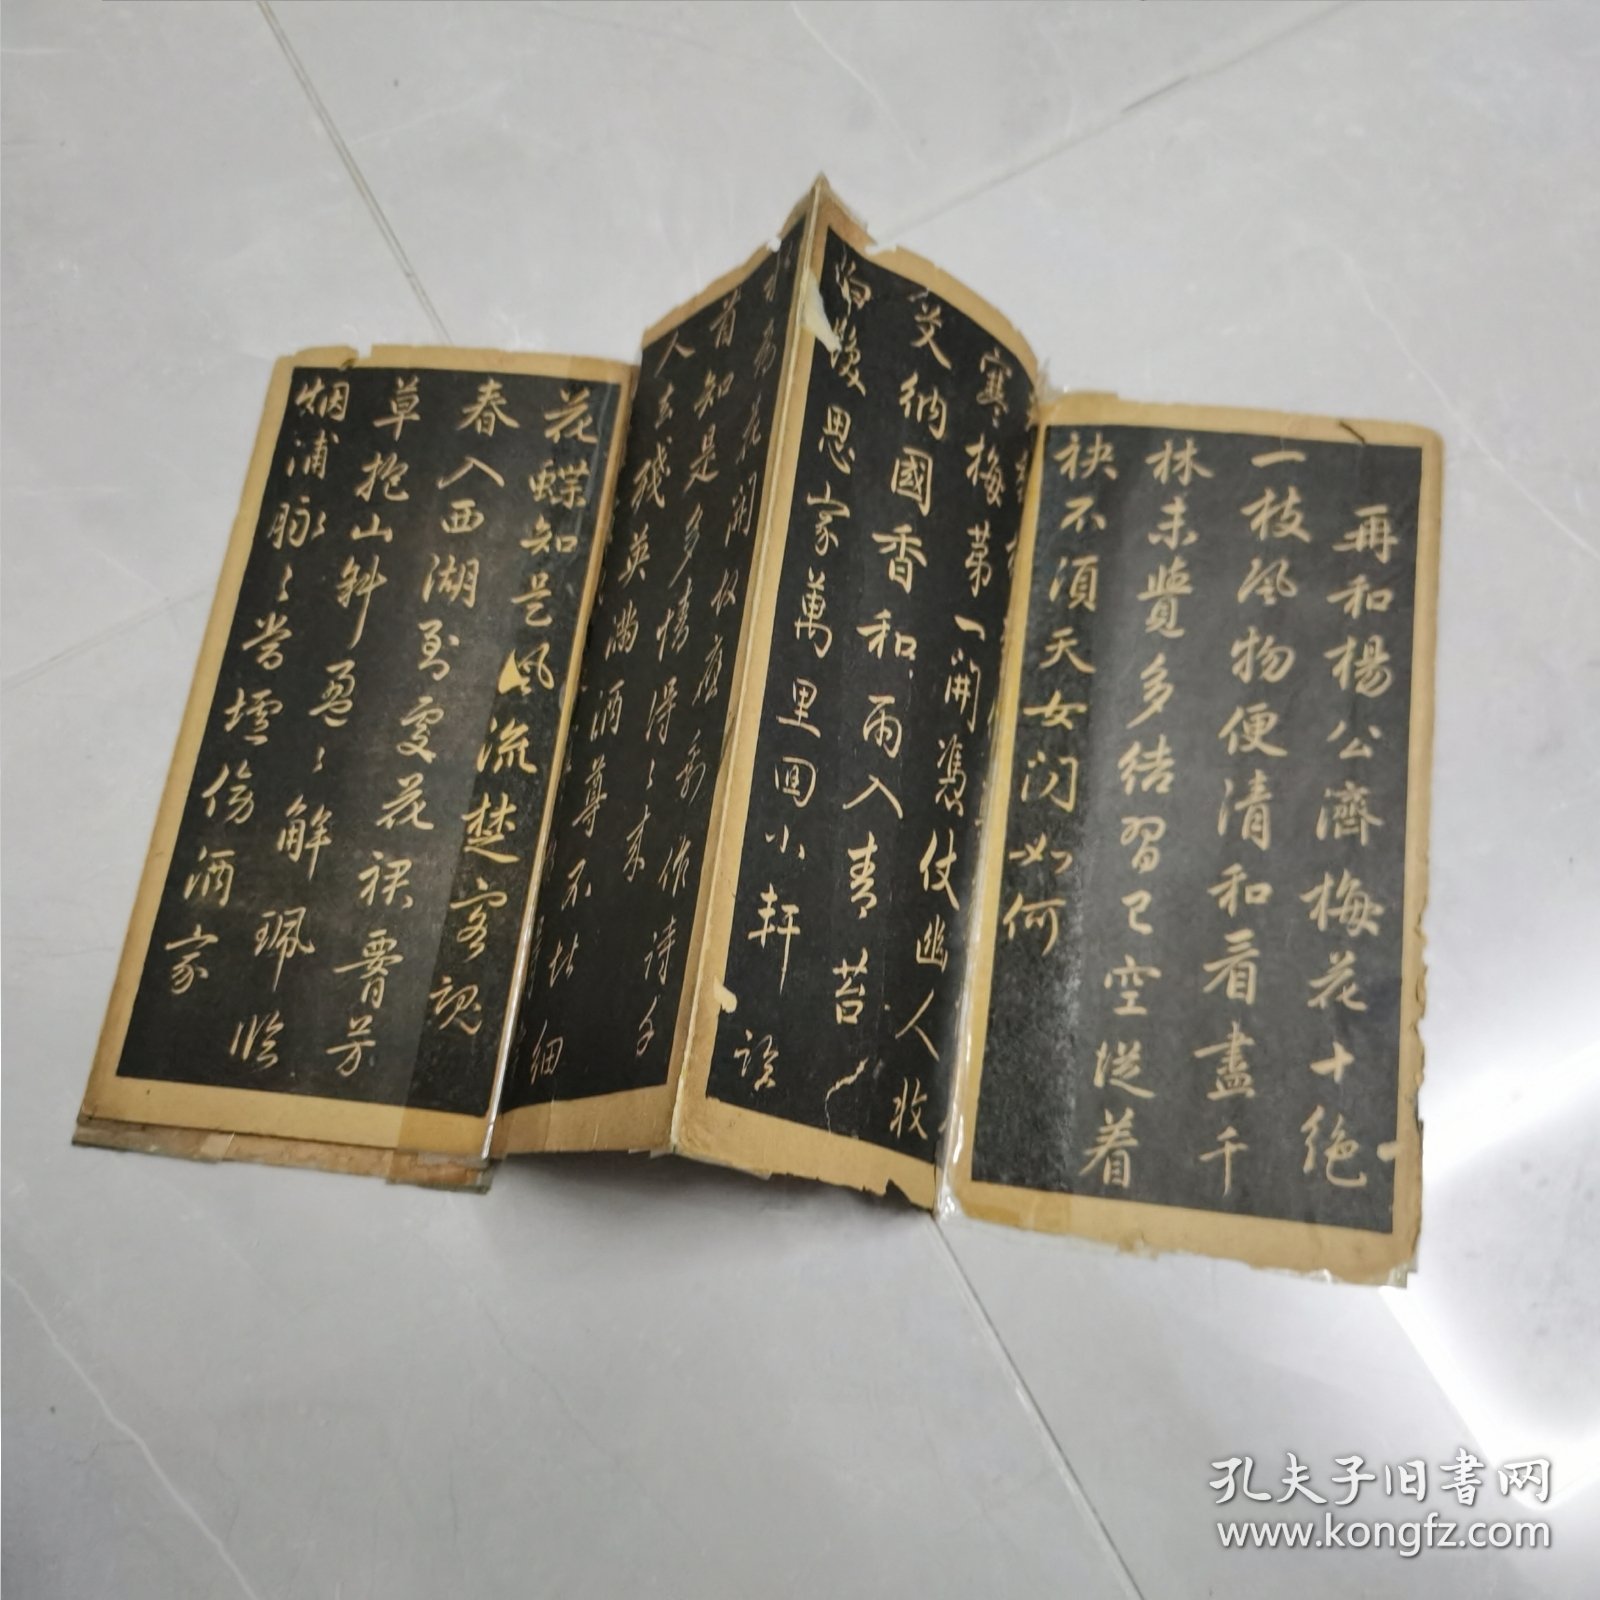 再和楊公濟梅花十绝
一枝风物便清和看盡千
林未覺多結習已空從着
袂不須天女问如何
寒梅
苐一開憑仗幽人收
艾納國香和雨入青苔
思家萬里回小軒
花開
首知是多情得〻来
作詩
人去殘英滿酒尊不
細
花蝶知是风流楚客魂
春入西湖到處花裙腰芳
草抱山斜盈〻解珮臨
烟浦脉〻當壚傍酒家
孔夫子旧书网
www.kongfz.com